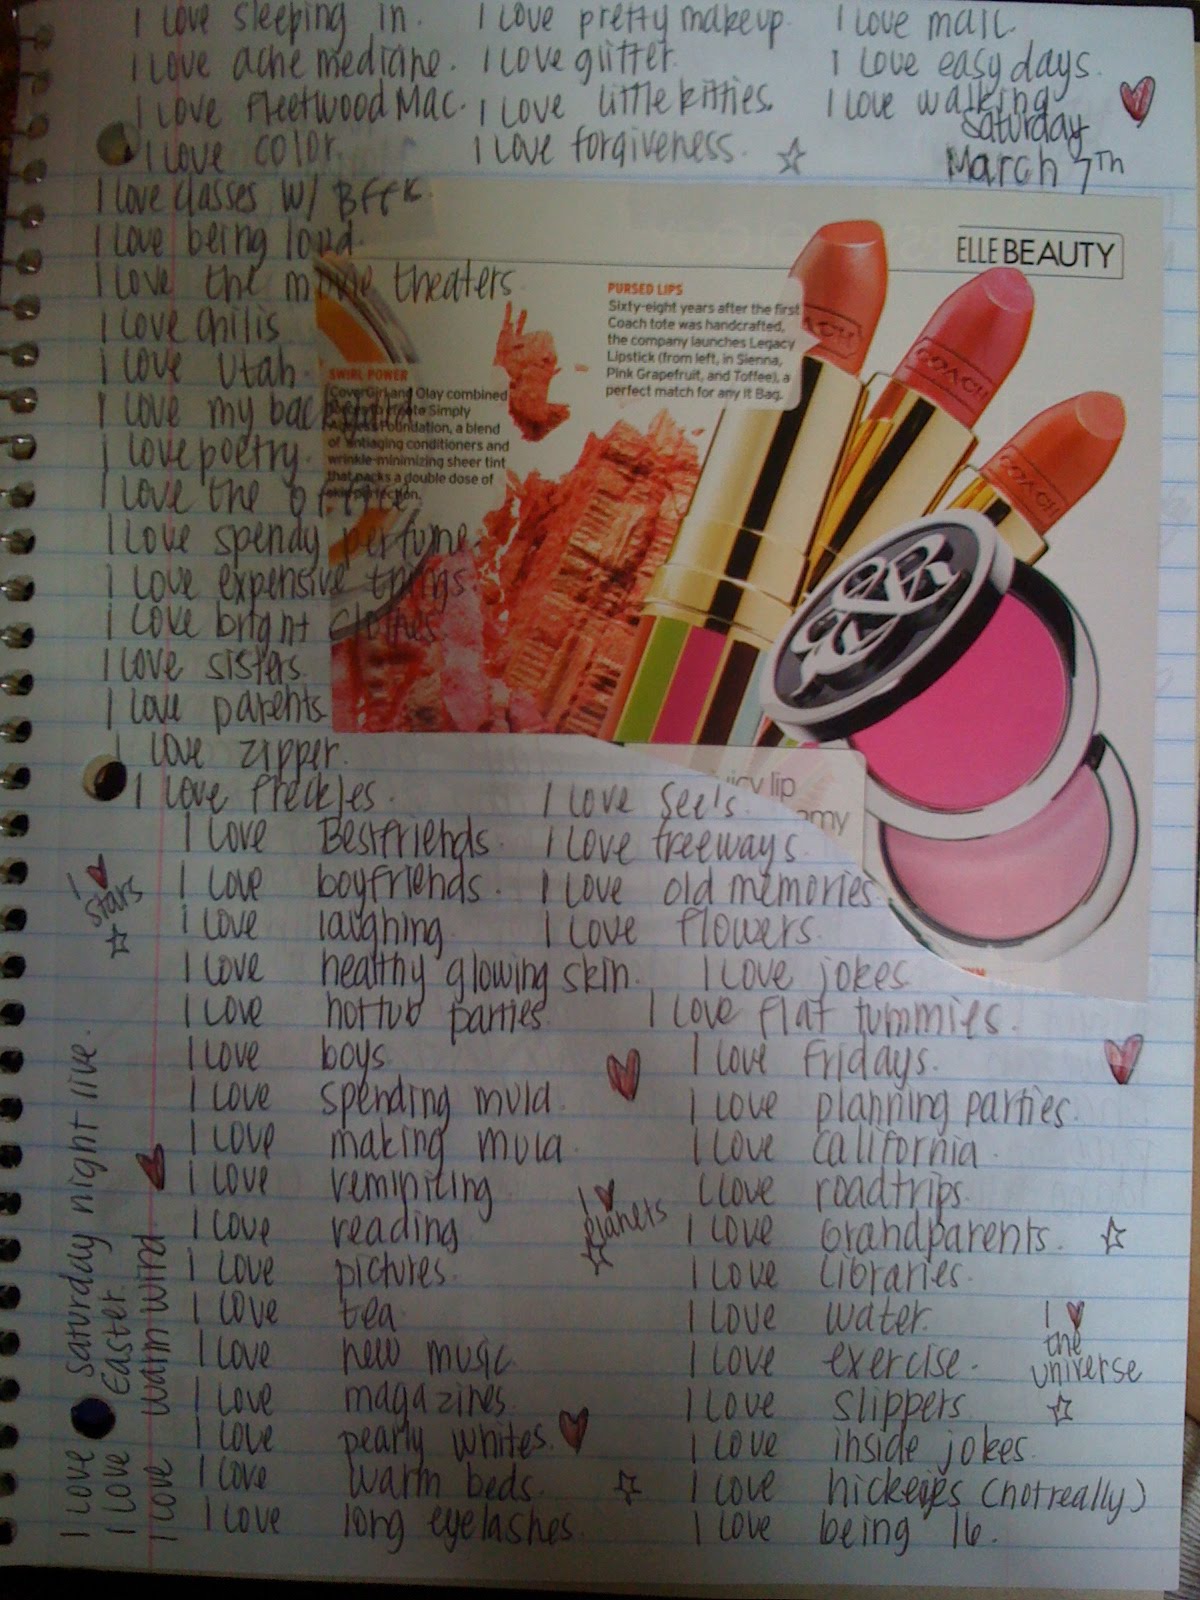 I love sleeping in. I love pretty makeup. I love mail.
I love acne medicine. I love glitter. I love easy days.
I love Fleetwood Mac. I love little kitties. I love walking
I love color. I love forgiveness.
Saturday
March 7th
I love classes w/
I love being loud.
I love the movie theaters
I love chilis
I love Utah.
I love my
I love poetry.
I love the
I love spendy perfume.
I love expensive things.
I love bright clothes.
I love sisters.
I love parents
I love zipper.
I love freckles.
ELLEBEAUTY
PURSED LIPS
Sixty-eight years after the first
Coach tote was handcrafted,
the company launches Legacy
Lipstick (from left, in Sienna,
Pink Grapefruit, and Toffee), a
perfect match for any It Bag.
SWIRL POWER
CoverGirl and Olay combined
to create Simply
Ageless Foundation, a blend
of antiaging conditioners and
wrinkle-minimizing sheer tint
that packs a double dose of
skin perfection.
COACH
COACH
COACH
juicy lip
I love See's.
I love Bestfriends. I love freeways.
I love boyfriends. I love old memories
I love laughing. I love flowers.
I love healthy glowing skin. I love jokes.
I love hottub parties. I love flat tummies.
I love boys. I love Fridays.
I love spending mula. I love planning parties.
I love making mula. I love California.
I love I love roadtrips.
I love reading I love Grandparents.
I love pictures. I love libraries.
I love tea. I love water.
I love new music. I love exercise.
I love magazines. I love slippers.
I love pearly whites. I love inside jokes.
I love warm beds. I love hickeys (not really)
I love long eyelashes. I love being 16.
I ♥
stars
I ♥
planets
I ♥
the
universe
I love Saturday night live.
I love Easter.
I love warm wind.